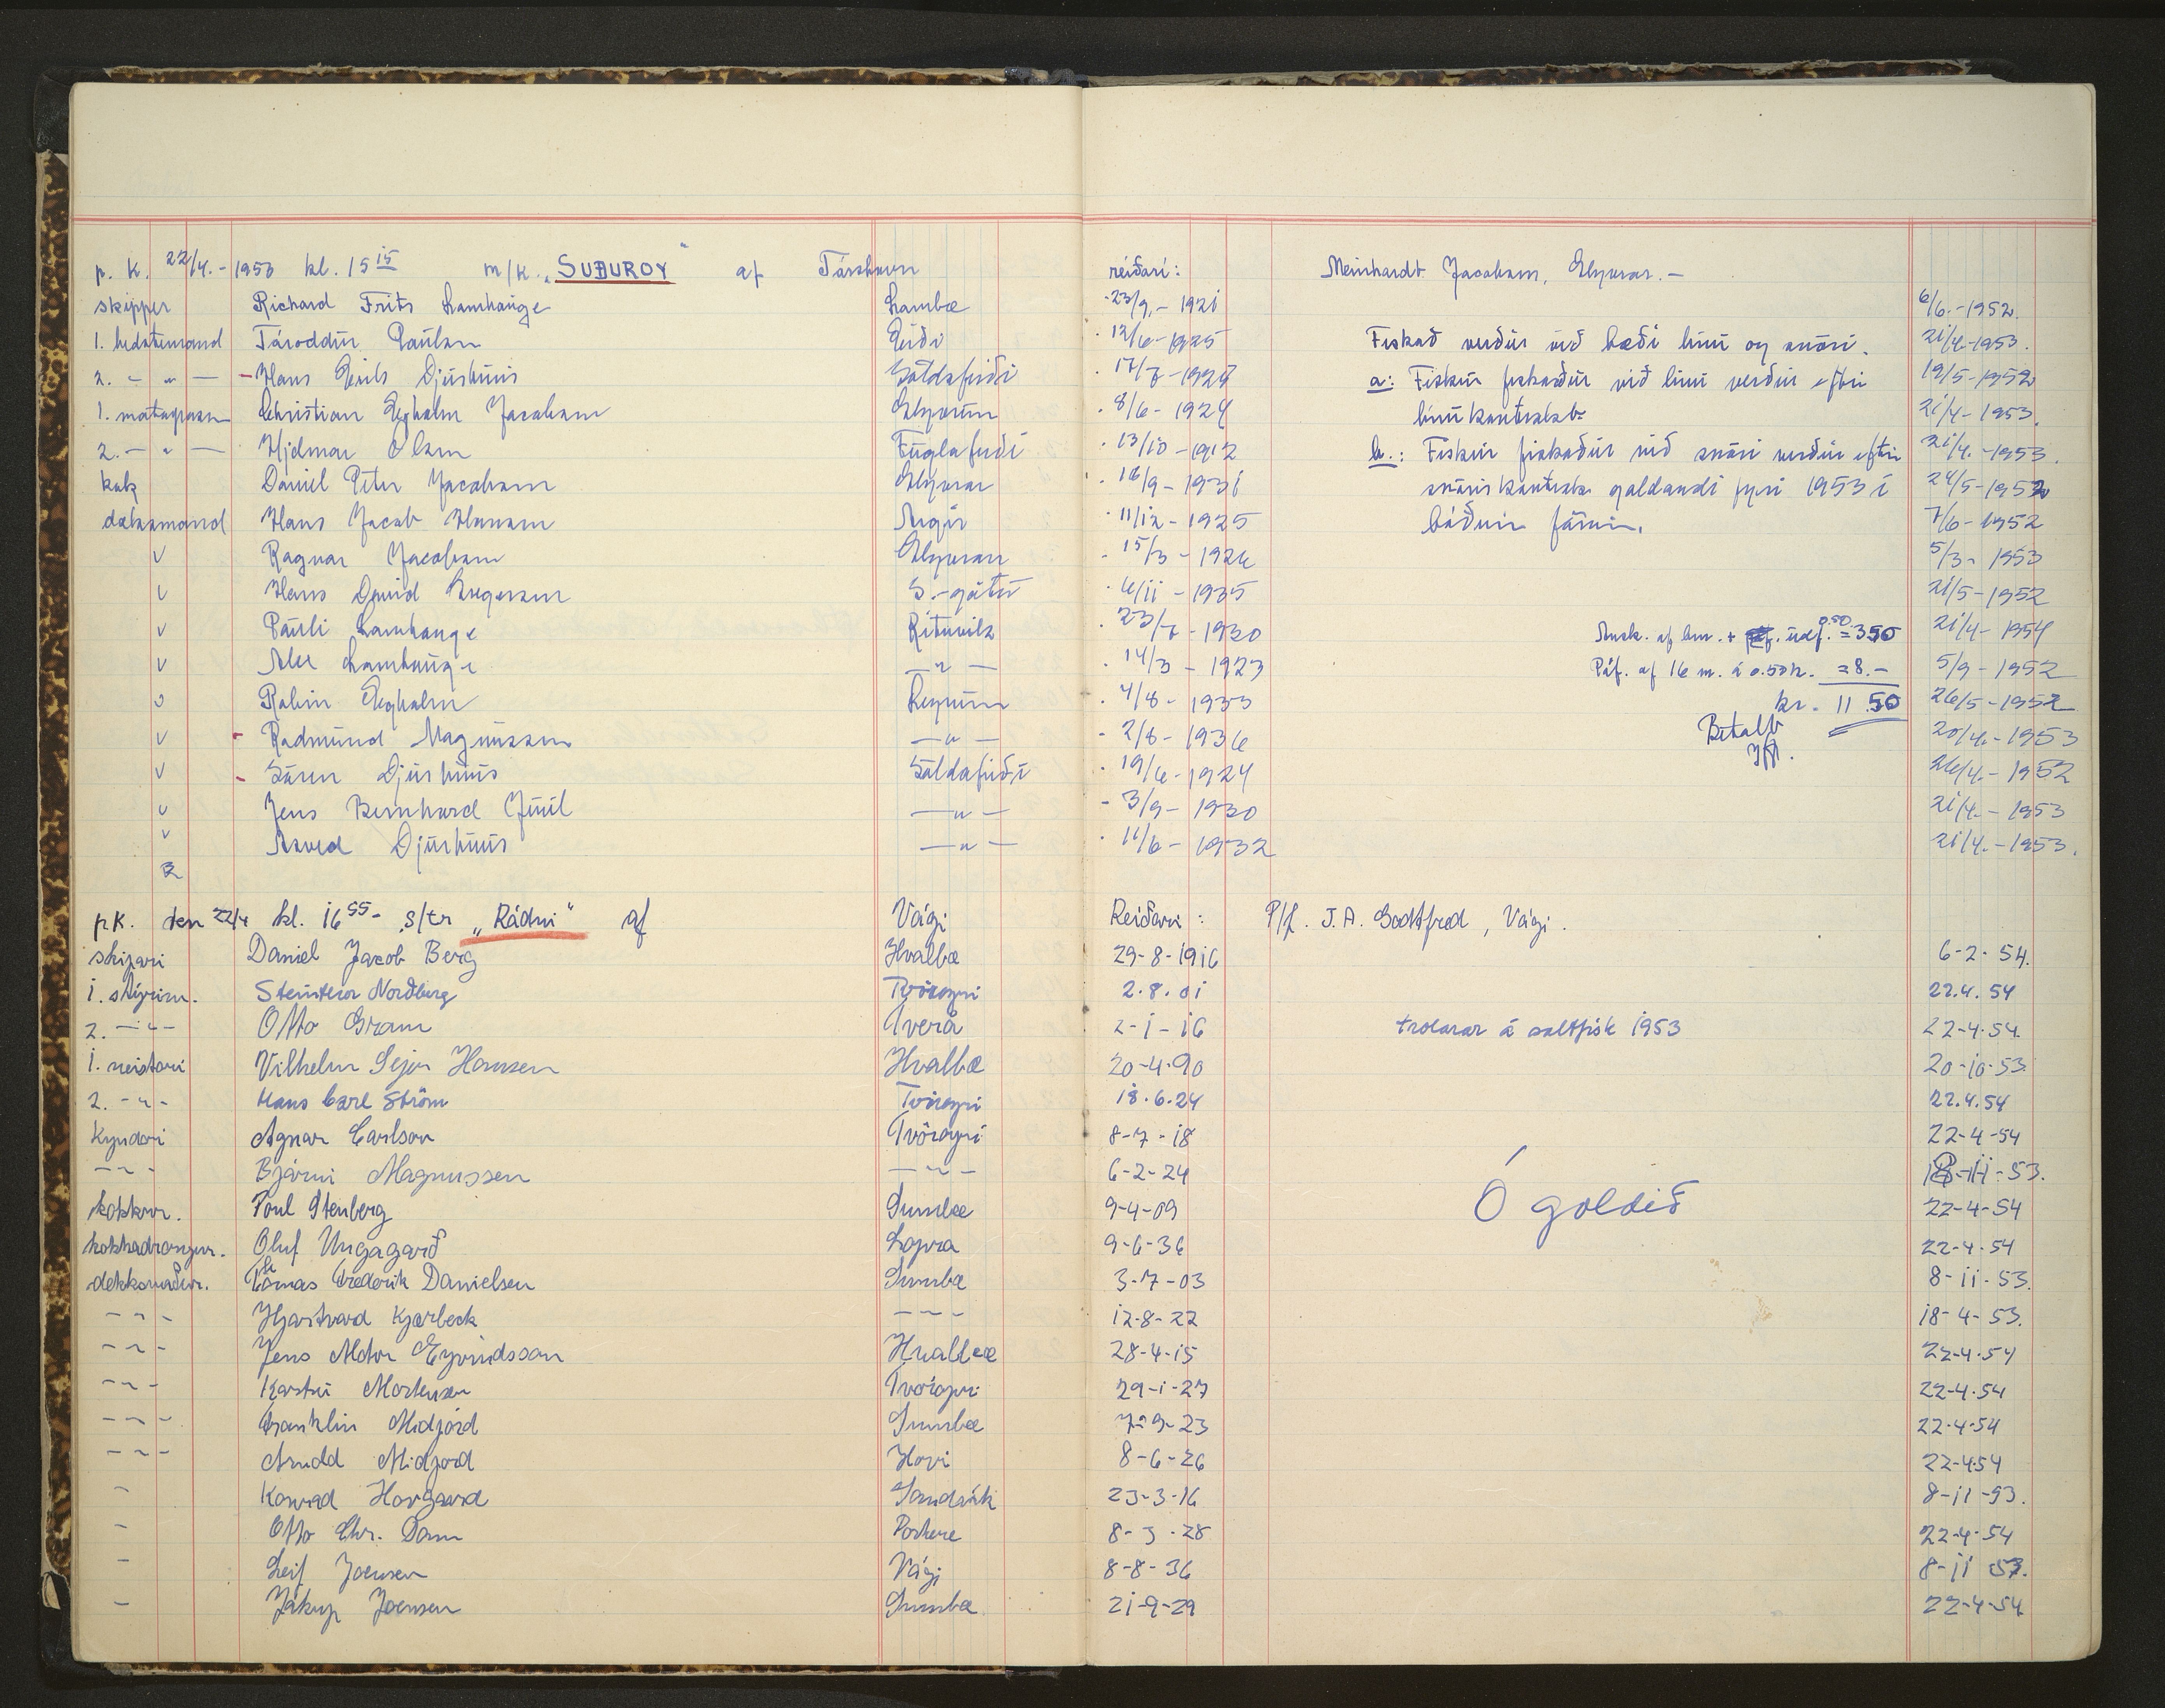 p. k. 22/4. - 1953 kl. 15 15 m/k. „SUÐUROY" af Tórshavn reiðari: Meinhardt Jacobsen, Glyvrar. —
skipper Richard Frits Lamhauge Lamba 23/9. - 1921 6/6. - 1952.
1. bedstemand Tóroddur Poulsen Eiði 12/6 - 1925 Fiskað verður við bæði línu og snøri. 21/4 - 1953.
2. — " — Hans Eirik Djurhuus Søldafirði 17/7 - 1929 a: Fiskur fiskaður við línu verður eftir 19/5 - 1952
1. motorpasser Christian Egholm Jacobsen Glyvrum 8/6 - 1924 línukontrakt 21/4 - 1953.
2. — " — Hjalmar Olsen Fuglafirði 13/10 - 1912 b.: Fiskur fiskaður við snøri verður eftir 21/4. - 1953.
kok Daniel Peter Jacobsen Glyvrar 16/9 - 1931 snøriskontrakt galdandi fyri 1953 í 24/5 - 1952
dæksmand Hans Jacob Hansen Argir 11/12 - 1925 báðum førum. 7/6 - 1952
v Ragnar Jacobsen Glyvrar 15/3 - 1926 5/3 - 1953
v Hans David Gregersen S.-gøtu 4/11 - 1935 21/5 - 1952
v Pauli Lamhauge Rituvík 23/7 - 1930 0.50 = 3.50 21/4 - 1954
v Alex Lamhauge — " — 14/3 - 1923 Påf. af 16 m. á 0.50 k. = 8.— 5/9 - 1952
v Robin Egholm 4/8 - 1933 kr. 11.50 26/5 - 1952
v Radmund Magnussen — " — 2/8 - 1936 Betalt 20/4. - 1953
v Søren Djurhuus Søldafirði 19/6 - 1924 26/4. - 1952
v Jens Bernhard Juul — " — 3/9 - 1930 21/4. - 1953
v Djurhuus — " — 11/6 - 1932 21/4. - 1953.
pk. den 22/4 kl. 16 55 - s/tr „Rádni" af Vági Reiðari: P/f. J. A. Godtfred, Vági.
skipari Daniel Jacob Berg Hvalba 29-8-1916 6-2-54.
1. stýrim. Steintor Norðberg Tvöroyri 2.8.01 22.4.54
2. — " — Otto Gram Øverá 2-1-16 trolarar á saltfisk 1953 22-4-54.
1. meistari Vilhelm Sejer Hansen Hvalba 20-4-90 20-10-53.
2. - " - Hans Carl Ström Tvöroyri 18.6.24 22.4.54
Kyndari Agnar Carlson Tvöroyri 8-7-18 22-4-54
- " - Bjárni Magnussen — " — 6-2-24 18-11-53.
kokkur. Poul Stenberg Sumba 9-4-09 Ó goldið 22-4-54
kokkadrongur. Oluf Ungagarð Lopra 9-6-36 22-4-54
dekksmaður. Tomas Frederik Danielsen Sumba 3-7-03 8-11-53.
- " - Hjartvard Kjærbeck - " - 12-8-22 18-4-53.
- " - Jens Motor Eyvindsson Hvalba 28-4-15 22-4-54
- " - Karstin Mortensen Tvöroyri 29-1-27 22-4-54
- " - Franklin Midjord Sumba 7-9-23 22-4-54
- " - Arnold Midjord Hovi 8-6-26 22-4-54
- Konrad Hovgaard Sandvik 23-3-16 8-11-53.
- Otto Chr. Dam Porkere 8-3-28 22-4-54
- Leif Joensen Vági 8-8-36 8-11 53.
- Jákup Joensen Sumba 21-9-29 22-4-54